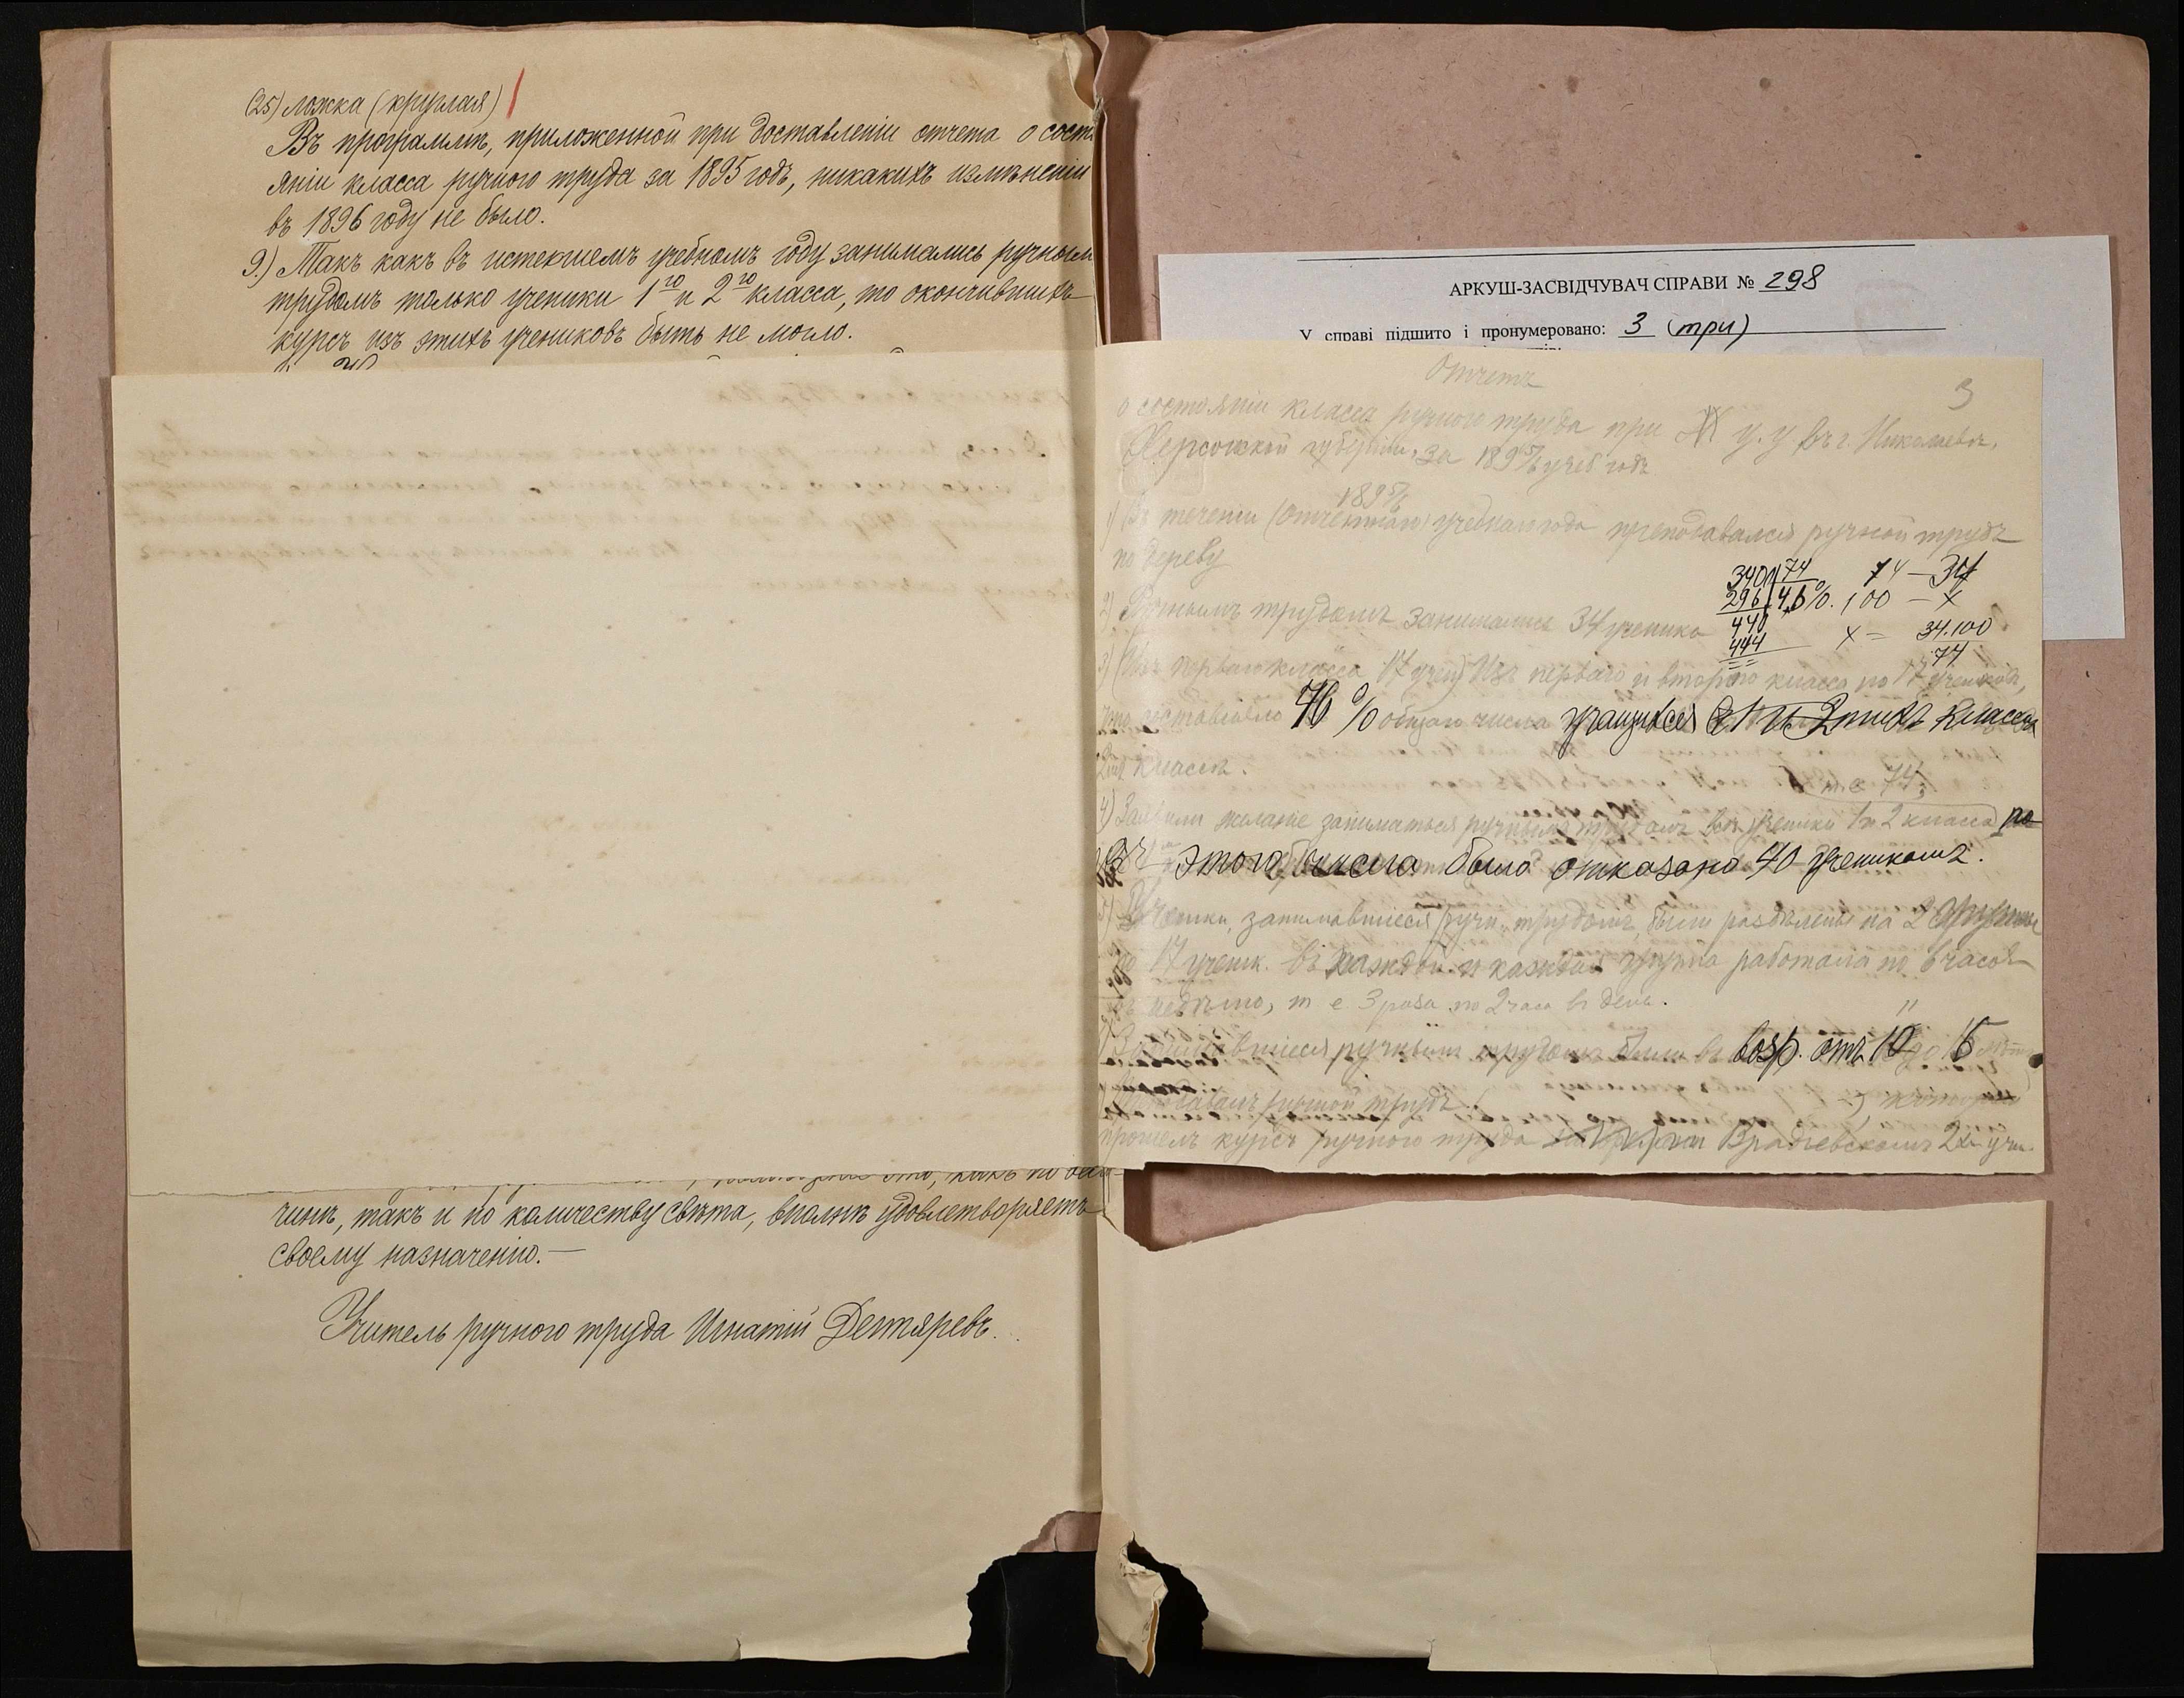 (25) ложка (круглая)
Въ программѣ, приложенной при доставленіи отчета о состо
яніи класса ручного труда за 1895 годъ, никакихъ измѣненій
въ 1896 году не было.
9.) Такъ какъ въ истекшемъ учебномъ году занимались ручнымъ
трудомъ только ученики 1го и 2го класса, то окончившихъ
курсъ изъ этихъ учениковъ быть не могло.
чинѣ, такъ и по количеству свѣта, вполнѣ удовлетворяетъ
своему назначенію.—
Учитель ручного труда Игнатій Дегтяревъ.
АРКУШ-ЗАСВІДЧУВАЧ СПРАВИ № 298
У справі підшито і пронумеровано: 3 (три)
3
Отчетъ
о состояніи класса ручного труда при у.у въ г. Николаевѣ,
Херсонской губерніи, за 1895/6 учеб годъ
1895/6
1) Въ теченіи (отчетнаго) учебнаго года преподавался ручной трудъ
по дереву
2) Ручнымъ трудомъ занимались 34 ученика
340 | 74
296 | 4,6%
440
444
74 — 34
100 — х
х = 34.100
74
3) (Изъ перваго класса 17 учен) Изъ перваго и второго класса по 17 учениковъ,
что составляло 46 % общаго числа учащихся 1 и 2 класса
класса.
т.е 74
4) Заявили желаніе заниматься ручнымъ трудомъ всѣ ученики 1 и 2 класса
этого числа было отказано 40 ученикамъ.
5) Ученики, занимавшіеся ручн. трудомъ, были раздѣлены на 2 группы
по 17 ученик. въ каждой и каждая группа работала по 6 часов
въ недѣлю, т е. 3 раза по 2 часа въ день.
11
Занимавшіеся ручнымъ трудомъ были въ возр. отъ 10 до 15 лѣтъ
ручной трудъ который
прошелъ курсъ ручного труда Врадіевскомъ 2хъ учи.